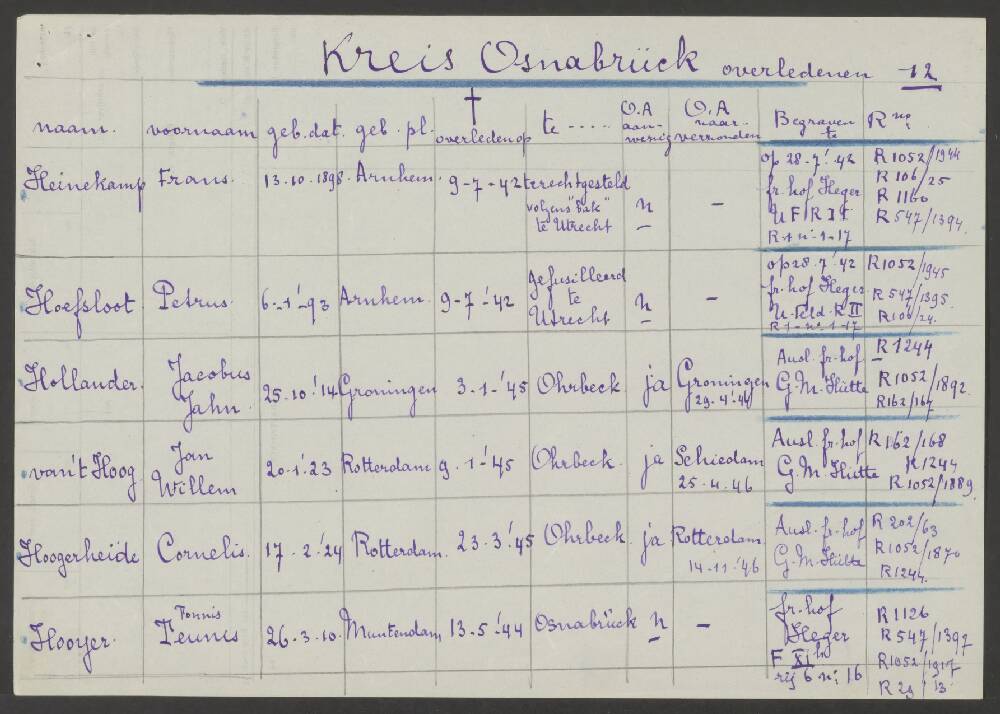 Kreis Osnabrück overledenen 12
naam. voornaam geb. dat. geb. pl. † overleden op te ..... O.A aan- wezig O.A naar verzonden Begraven te R nrs
Heinekamp Frans. 13.10.1898. Arnhem. 9-7-42 terechtgesteld volgens "bak" te Utrecht n - op 28-7-'42 fr. hof Heger R 1052/1944
R 106/25
R 1160
R 547/1394.
R 1 nr. 1-17
Hoefsloot Petrus. 6-1-'93 Arnhem. 9-7-'42 gefusilleerd te Utrecht n - op 28-7-'42 fr. hof Heger R II R 1052/1945
R 547/1395.
R 106/24.
R 1 - nr. 1-17
Hollander. Jacobus Jahn. 25.10.'14 Groningen 3-1-'45 Ohrbeck ja Groningen 29.4.'44 Ausl. fr. hof G.M. Hütte R 1244
R 1052/1892.
R 162/167
van't Hoog. Jan Willem 20.1.'23 Rotterdam 9.1-'45 Ohrbeck. ja Schiedam 25.4.46 Ausl. fr. hof G.M. Hütte R 162/168
R 1244
R 1052/1889.
Hoogerheide Cornelis. 17-2-'24 Rotterdam. 23.3.'45 Ohrbeck. ja Rotterdam. 14-11-'46 Ausl. fr. hof G.M. Hütte R 202/63
R 1052/1870
R 1244.
Hooyer. Tonnis Teunis 26-3-10. Muntendam 13-5-'44 Osnabrück n - fr. hof Heger R 1126
R 547/1397
F XI
rij 6 nr. 16 R 1052/1917
R 29/13